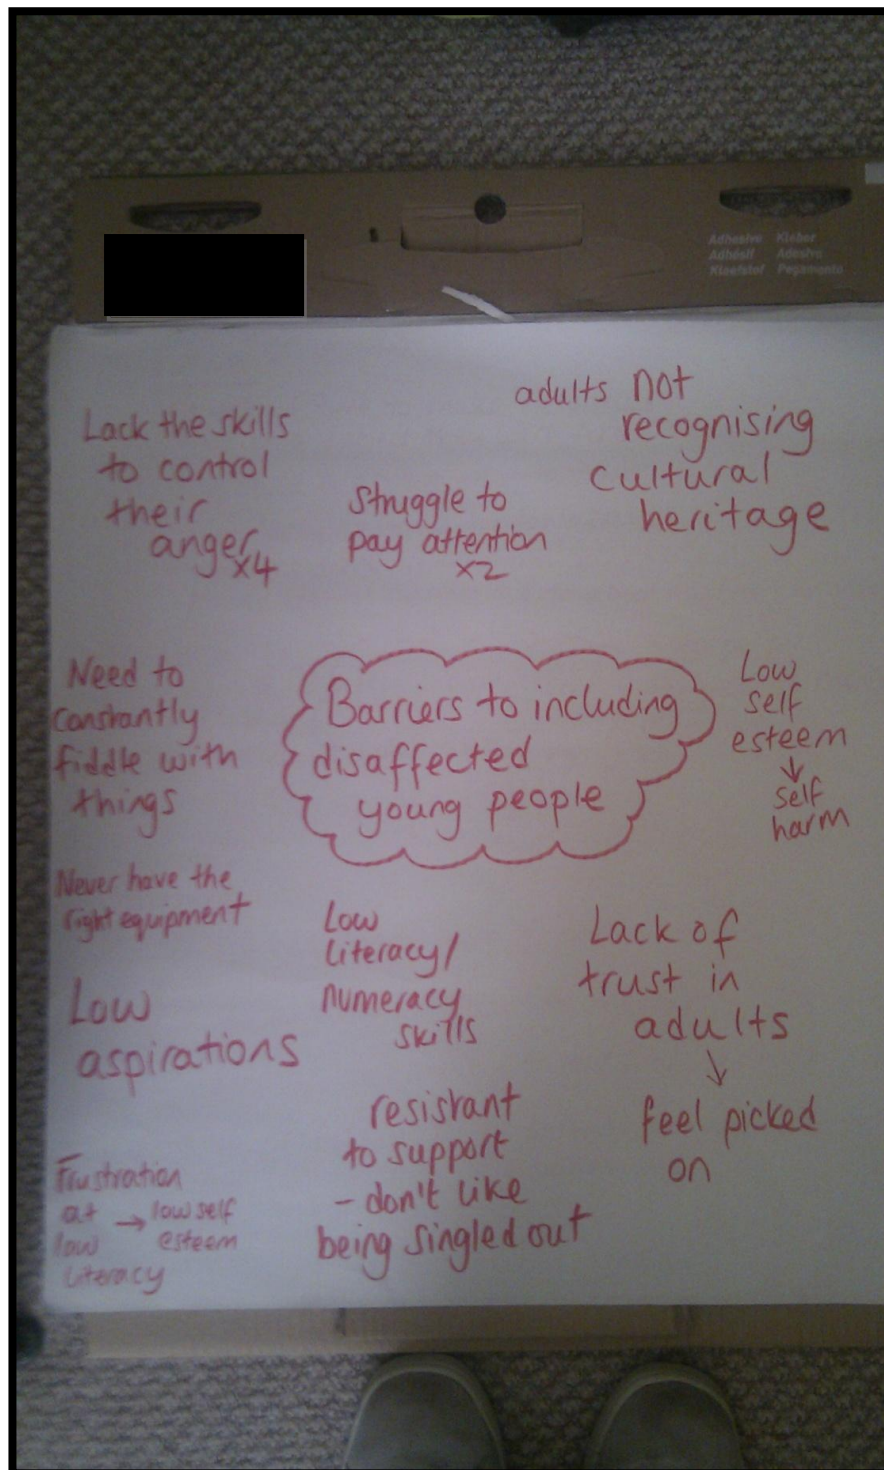 Adhesive Kleber
Adhésif Adesivo
Kleefstof Pegamento
Lack the skills
to control
their
anger x4
struggle to
pay attention
x2
adults not
recognising
cultural
heritage
Need to
constantly
fiddle with
things
Barriers to including
disaffected
young people
Low
self
esteem
↓
self
harm
Never have the
right equipment
Low
literacy/
numeracy
skills
Lack of
trust in
adults
↓
feel picked
on
Low
aspirations
resistant
to support
- don't like
being singled out
Frustration
at → low self
low esteem
literacy